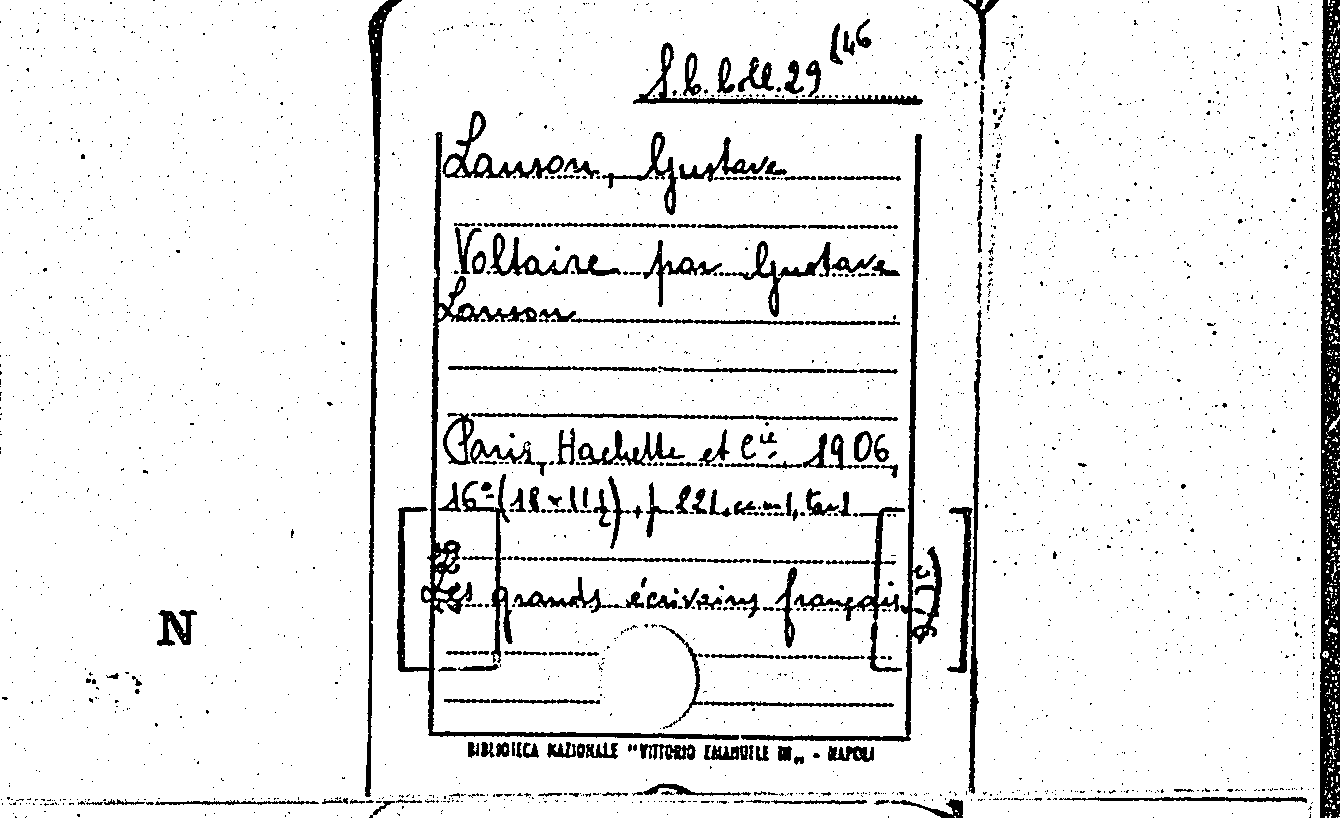 S.b. Coll. 29 (46
Lanson, Gustave
Voltaire par Gustave
Lanson
Paris, Hachette et Cie. 1906,
16º (18 × 11½), p 221,
Les grands écrivains français
N
BIBLIOTECA NAZIONALE "VITTORIO EMANUELE III„ - NAPOLI